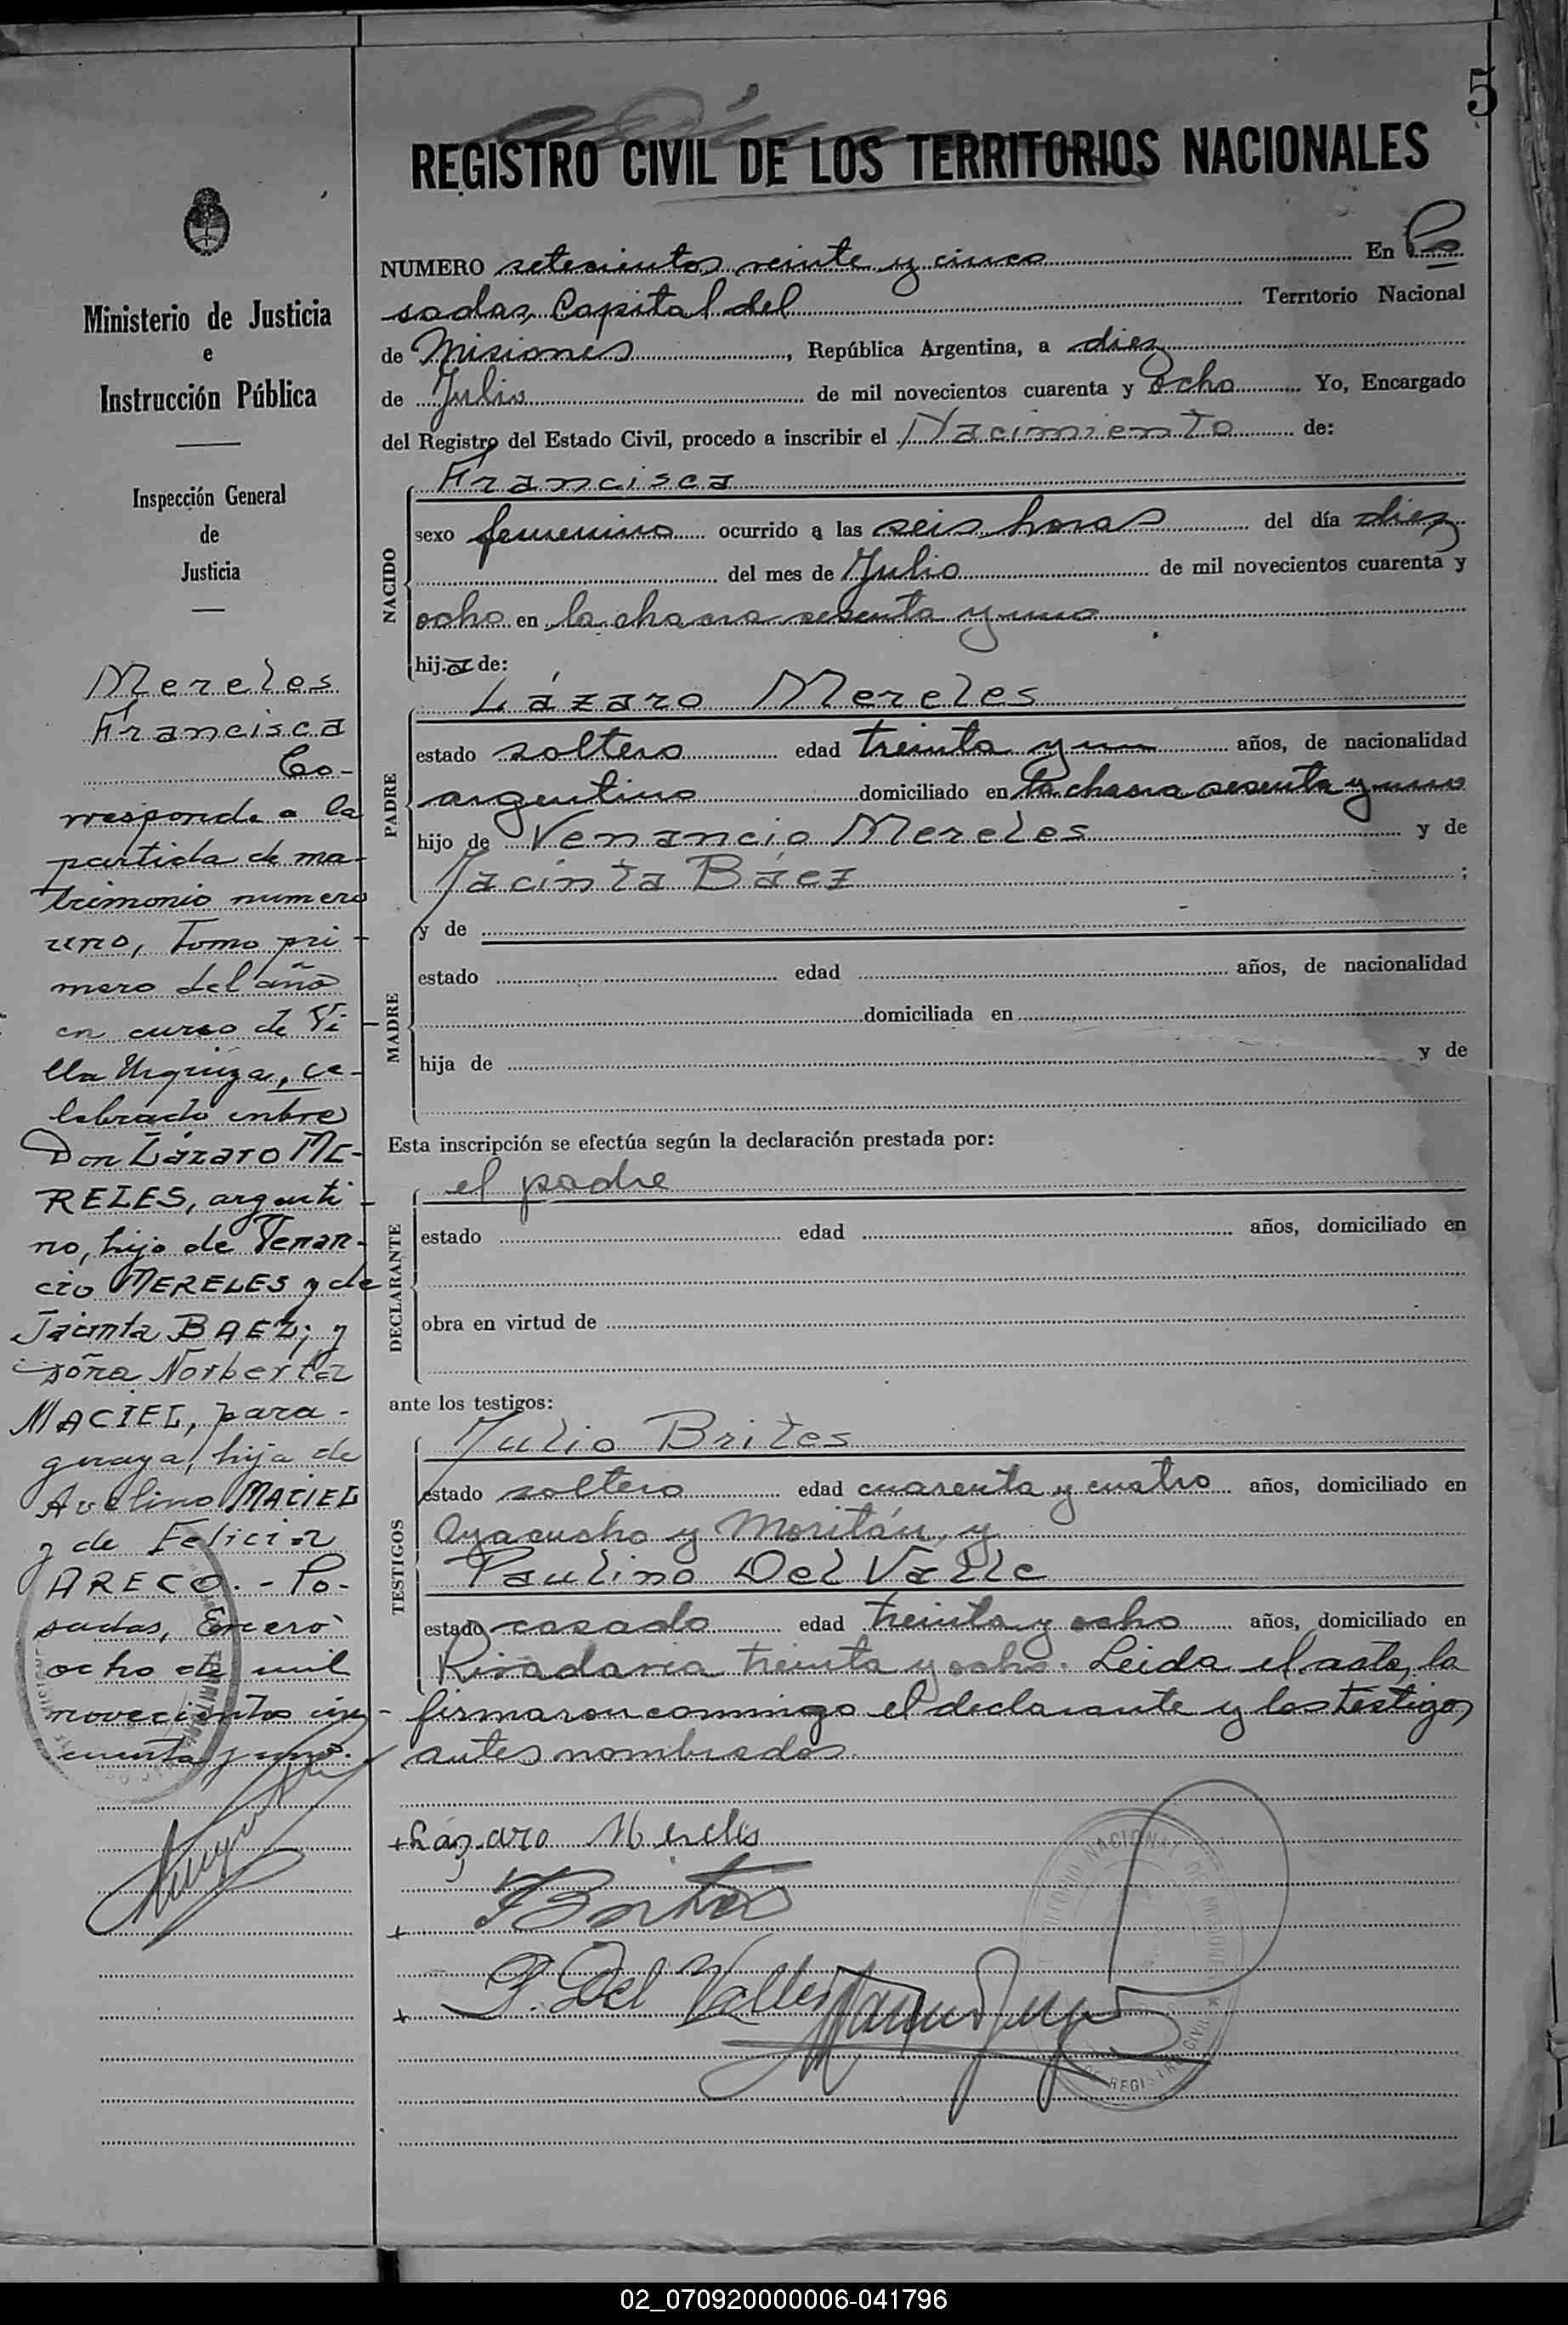 5
REGISTRO CIVIL DE LOS TERRITORIOS NACIONALES
Ministerio de Justicia
e
Instrucción Pública
Inspección General
de
Justicia
Mereles
Francisca
Co-
rresponde a la
partida de ma-
trimonio numero
uno, Tomo pri-
mero del año
en curso de Vi-
lla Urquiza, ce-
lebrado entre
Don Lázaro ME-
RELES, argenti-
no, hijo de Venan-
cio MERELES y de
Jacinta BAEZ; y
doña Norberta
MACIEL, para-
guaya, hija de
Avelino MACIEL
y de Felicia
ARECO.- Po-
sadas, Enero
ocho de mil
novecientos cin-
cuenta y uno.
NUMERO setecientos veinte y cinco En Po
sadas, Capital del Territorio Nacional
de Misiones, República Argentina, a diez
de Julio de mil novecientos cuarenta y ocho Yo, Encargado
del Registro del Estado Civil, procedo a inscribir el Nacimiento de:
NACIDO
Francisca
sexo femenino ocurrido a las seis horas del día diez
del mes de Julio de mil novecientos cuarenta y
ocho en la chacra sesenta y uno
hija de:
PADRE
Lázaro Mereles
estado soltero edad treinta y un años, de nacionalidad
argentino domiciliado en la chacra sesenta y uno
hijo de Venancio Mereles y de
Jacinta Báez ;
MADRE
y de
estado edad años, de nacionalidad
domiciliada en
hija de y de
Esta inscripción se efectúa según la declaración prestada por:
DECLARANTE
el padre
estado edad años, domiciliado en
obra en virtud de
ante los testigos:
TESTIGOS
Julio Brites
estado soltero edad cuarenta y cuatro años, domiciliado en
Ayacucho y Moritán, y
Paulino Del Valle
estado casado edad treinta y ocho años, domiciliado en
Rivadavia treinta y ocho. Leida el acta, la
firmaron conmigo el declarante y los testigos
antes nombrados
+ Lázaro Mereles
+ JBrites
+ P. Del Valle
TERRITORIO NACIONAL DE MISIONES
REGISTRO CIVIL
02_070920000006-041796